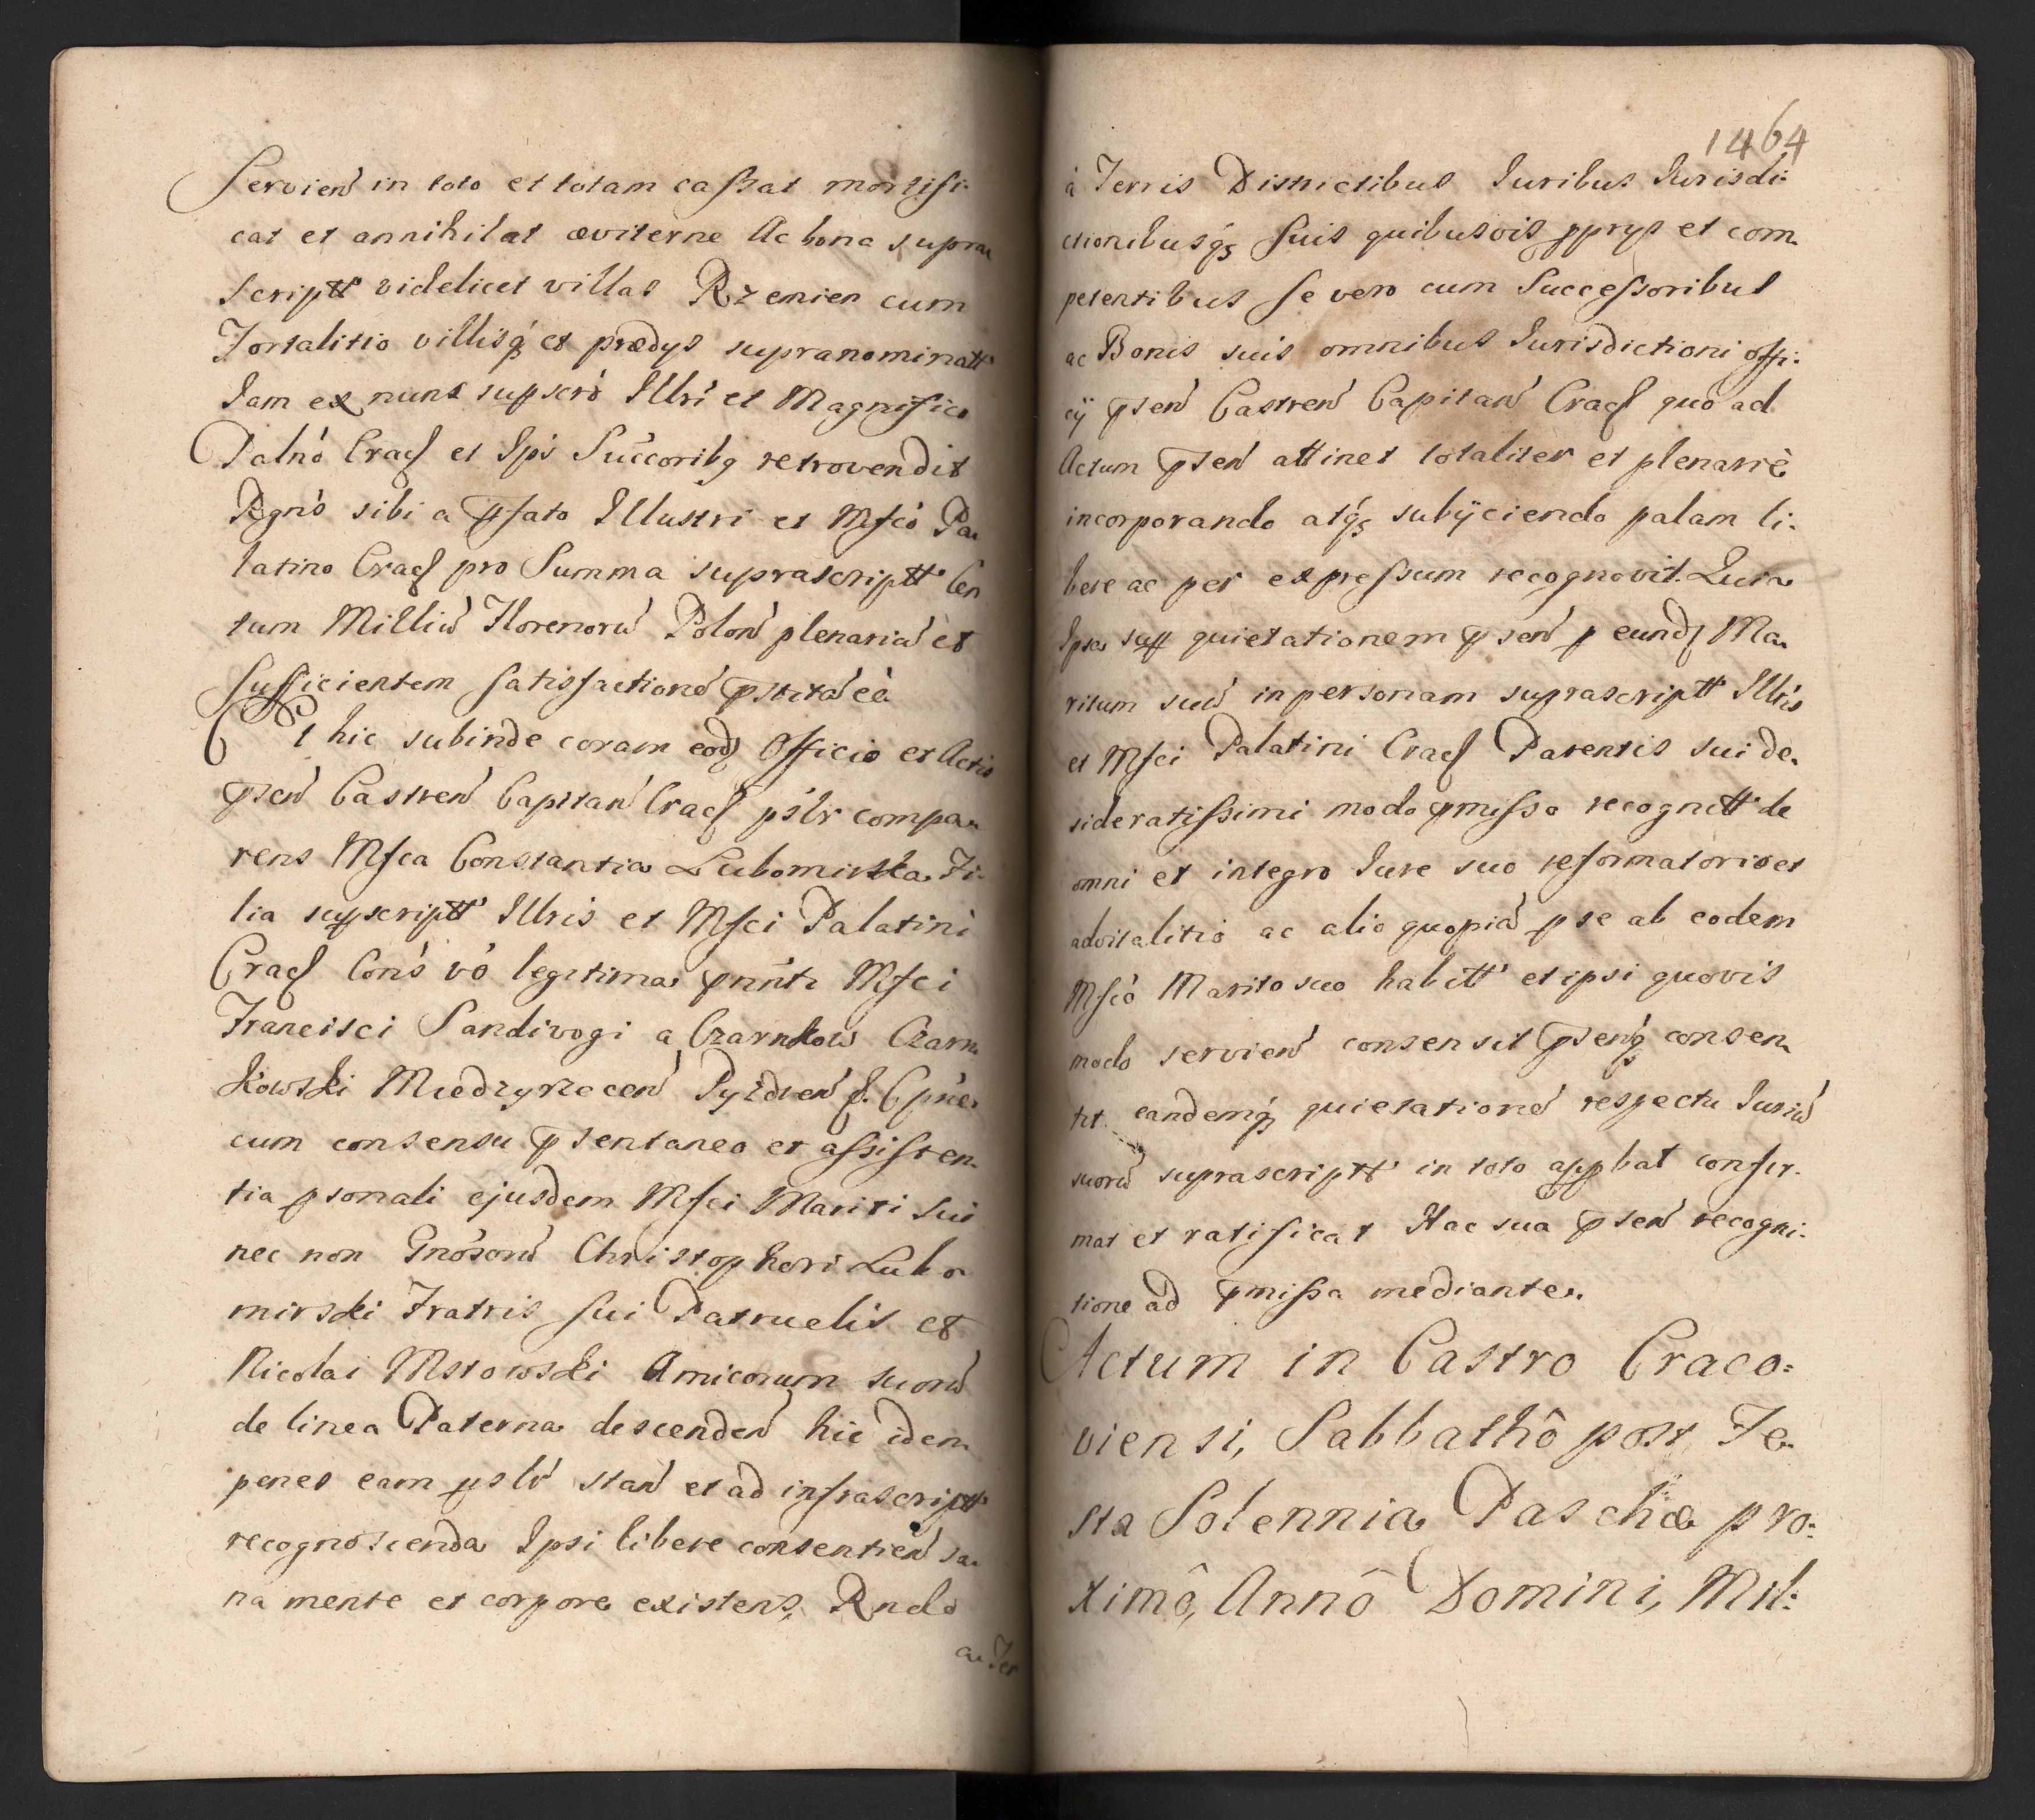 Servien in toto et totam caſsat mortifi-
cat et annihilat æviterne Ac bona supra
script videlicet villas Rzemien cum
Fortalitio villisq et prædys supranominatt
Jam ex nunc supscro Illri et Magnifico
Palno Crac et Ipś Succorib retrovendit
sibi a pfato Illustri et Mfco Pa
latino Crac pro Summa suprascriptt Cen
tum Milliu Florenoru Polon plenaria et
sufficientem satisfactione pstita eē
Et hic subinde coram eod Officio et Actis
psen Castren Capitan Crac pslr compa
rens Mfca Constantia Lubomirska Fi-
lia supscriptt Illris et Mfci Palatini
Crac Cons vo legitima Mfci
Francisci Sandivogi a Czarnkow Czarn
kowski Miedzyrzecen Pyzdren
cum consensu psentaneo et aſsisten
tia psonali ejusdem Mfci Mariti sui
nec non Gnosoru Christophori Lubo
mirski Fratris sui Patruelis et
Nicolai Mstowski Amicorum suoru
de linea Paterna descenden hic idem
penes eam pslr stan et ad infrascriptt
recognoscenda Ipsi libere consentien sa
na mente et corpore existens, Rndo
a Ter
1464
à Terris Districtibus Juribus Jurisdi-
ctionibusq suis quibusvis pprys et com
petentibus se vero cum Succeſsoribus
ac Bonis suis omnibus Jurisdictioni offi-
cÿ psen Castren Capitan Crac quo ad
Actum psen attinet totaliter et plenariè
incorporando atq subÿciendo palam li-
bere ac per expreſsum recognovit. Quia
Ipsa quietationem psen p eund Ma
ritum suu in personam suprascriptt Illris
et Mfci Palatini Crac Parentis sui de
sideratiſsimi modo pmiſso recognitt de
omni et integro Jure suo reformatorio et
advitalitio ac alio quopia p se ab eodem
Mfco Marito suo habitt et ipsi quovis
modo servien consensit psenq consen
tit eandemq quietatione respectu Juriu
suoru suprascriptt in toto appbat confir-
mat et ratificat Hac sua psen recogni-
tione ad pmiſsa mediante.
Actum in Castro Craco:
viensi, Sabbathô post Fe
sta Solennia Paschæ pro:
ximô, Annô Domini, Mil: